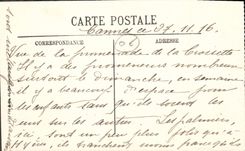 CARTE POSTALE
CORRESPONDANCE
ADRESSE
Cannes ce 11 16
Vue de la promenade de la Croisette
Il y a des promeneurs nombreux
surtout le dimanche, en semaine
il y a beaucoup d'espace pour
les enfants sans qu'ils soient les
uns sur les autres. Les palmiers,
ici, sont un peu plus jolis qu'à
Hyères, ils tranchent moins